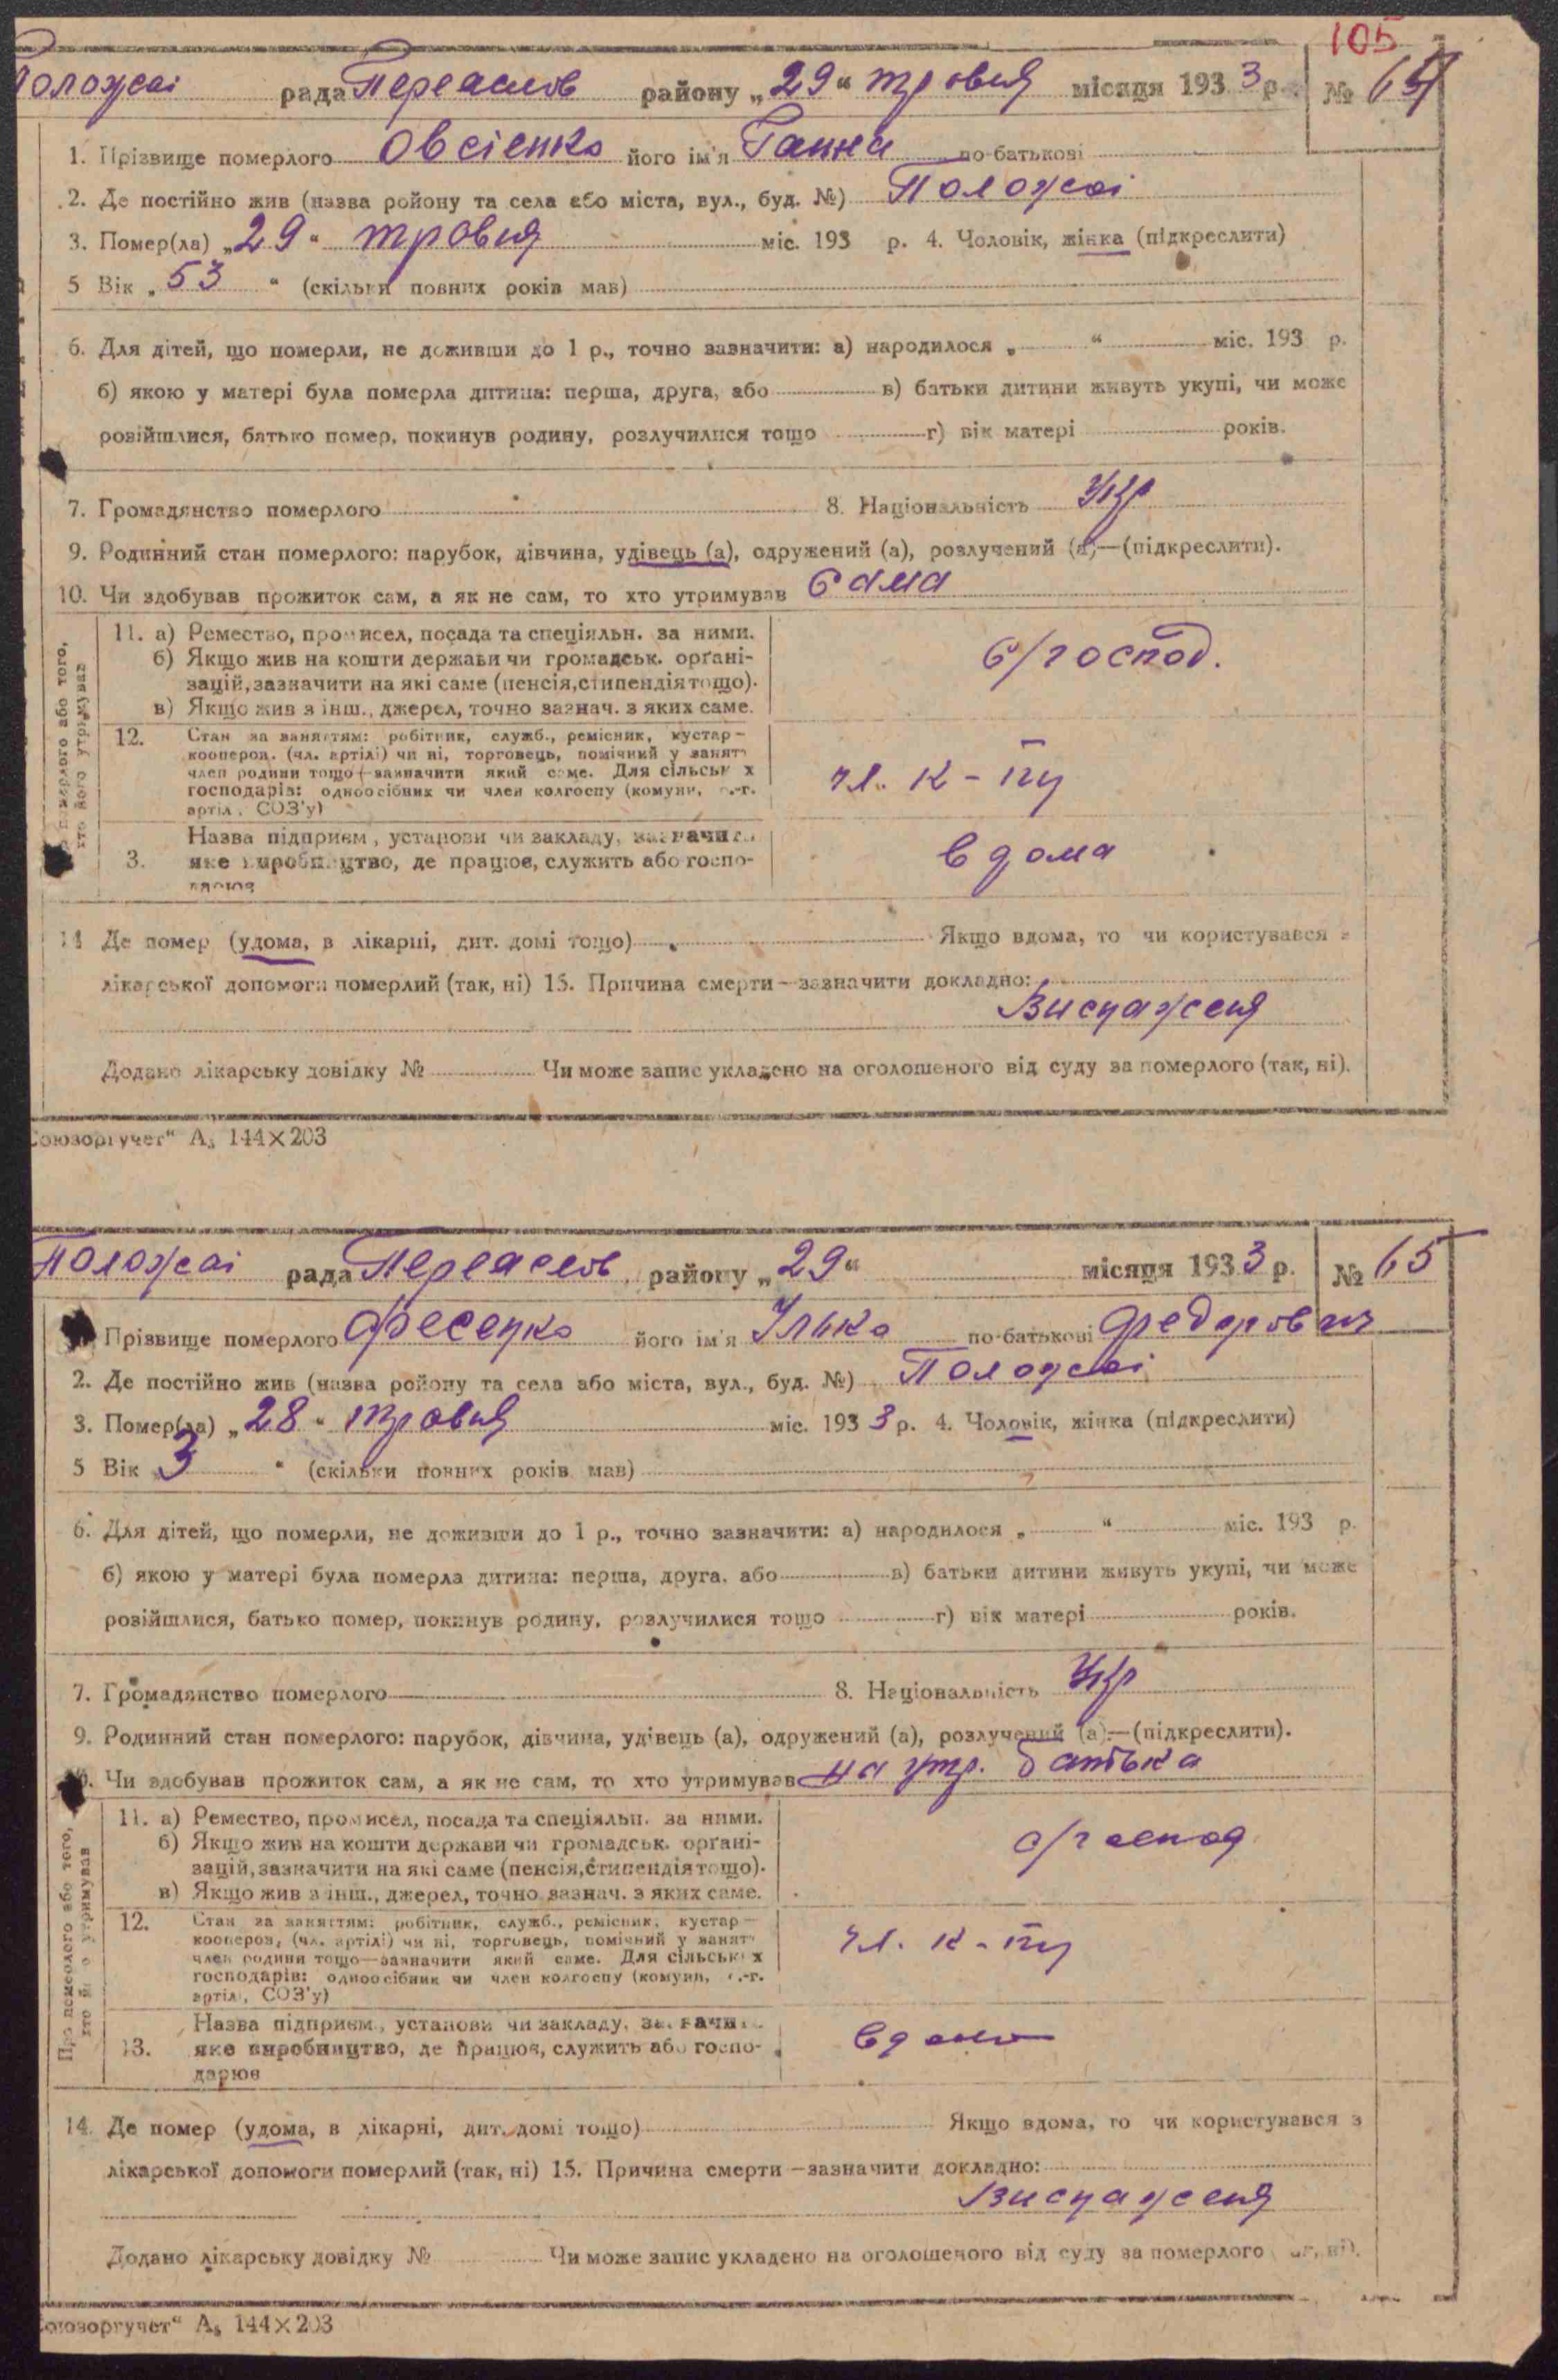 105
Положаї рада Переаслов району „29“ тровня місяця 1933 р. № 64
1. Прізвище померлого Овсієнко його ім'я Ганна по-батькові
2. Де постійно жив (назва ройону та села або міста, вул., буд. №) Положаї
3. Помер(ла) „29“ тровня міс. 193 р. 4. Чоловік, жінка (підкреслити)
5 Вік „53“ (скільки повних років мав)
6. Для дітей, що померли, не доживши до 1 р., точно зазначити: а) народилося „ “ міс. 193 р.
б) якою у матері була померла дитина: перша, друга, або в) батьки дитини живуть укупі, чи може
розійшлися, батько помер, покинув родину, розлучилися тощо г) вік матері років.
7. Громадянство померлого 8. Національність Укр
9. Родинний стан померлого: парубок, дівчина, удівець (а), одружений (а), розлучений (а)—(підкреслити).
10. Чи здобував прожиток сам, а як не сам, то хто утримував Сама
11. а) Ремество, промисел, посада та спеціяльн. за ними.
б) Якщо жив на кошти держави чи громадськ. органі-
зацій, зазначити на які саме (пенсія, стипендія тощо).
в) Якщо жив з інш., джерел, точно зазнач. з яких саме.
с/господ.
12. Стан за заняттям: робітник, служб., ремісник, кустар—
кооперов. (чл. артілі) чи ні, торговець, помічний у занят
член родини тощо—зазначити який саме. Для сільськ х
господарів: одноосібник чи член колгоспу (комуни, с.-г.
артіл., СОЗ'у)
чл. к-пу
3. Назва підприєм., установи чи закладу, зазначити
яке виробництво, де працює, служить або госпо-
дарює
вдома
14 Де помер (удома, в лікарні, дит. домі тощо) Якщо вдома, то чи користувався з
лікарської допомоги померлий (так, ні) 15. Причина смерти—зазначити докладно:
Виснаженя
Додано лікарську довідку № Чи може запис укладено на оголошеного від суду за померлого (так, ні).
Союзоргучет“ А₅ 144×203
Положаї рада Переаслов району „29“ місяця 1933 р. № 65
Прізвище померлого Фесенко його ім'я Ілько по-батькові Федорович
2. Де постійно жив (назва ройону та села або міста, вул., буд. №) Положаї
3. Помер(ла) „28“ тровня міс. 1933 р. 4. Чоловік, жінка (підкреслити)
5 Вік „3“ (скільки повних років мав)
6. Для дітей, що померли, не доживши до 1 р., точно зазначити: а) народилося „ “ міс. 193 р.
б) якою у матері була померла дитина: перша, друга, або в) батьки дитини живуть укупі, чи може
розійшлися, батько помер, покинув родину, розлучилися тощо г) вік матері років.
7. Громадянство померлого 8. Національність Укр
9. Родинний стан померлого: парубок, дівчина, удівець (а), одружений (а), розлучений (а)—(підкреслити).
10. Чи здобував прожиток сам, а як не сам, то хто утримував на утр. батька
Про померлого або того, хто його утримував
11. а) Ремество, промисел, посада та спеціяльн. за ними.
б) Якщо жив на кошти держави чи громадськ. органі-
зацій, зазначити на які саме (пенсія, стипендія тощо).
в) Якщо жив з інш., джерел, точно зазнач. з яких саме.
с/господ
12. Стан за заняттям: робітник, служб., ремісник, кустар—
кооперов, (чл. артілі) чи ні, торговець, помічний у занят
член родини тощо—зазначити який саме. Для сільськ х
господарів: одноосібник чи член колгоспу (комуни, с.-г.
артіл., СОЗ'у)
чл. к-пу
13. Назва підприєм., установи чи закладу, зазначит
яке виробництво, де працює, служить або госпо-
дарює
вдома
14. Де помер (удома, в лікарні, дит. домі тощо) Якщо вдома, то чи користувався з
лікарської допомоги померлий (так, ні) 15. Причина смерти—зазначити докладно:
Виснаженя
Додано лікарську довідку № Чи може запис укладено на оголошеного від суду за померлого (так, ні).
Союзоргучет“ А₅ 144×203